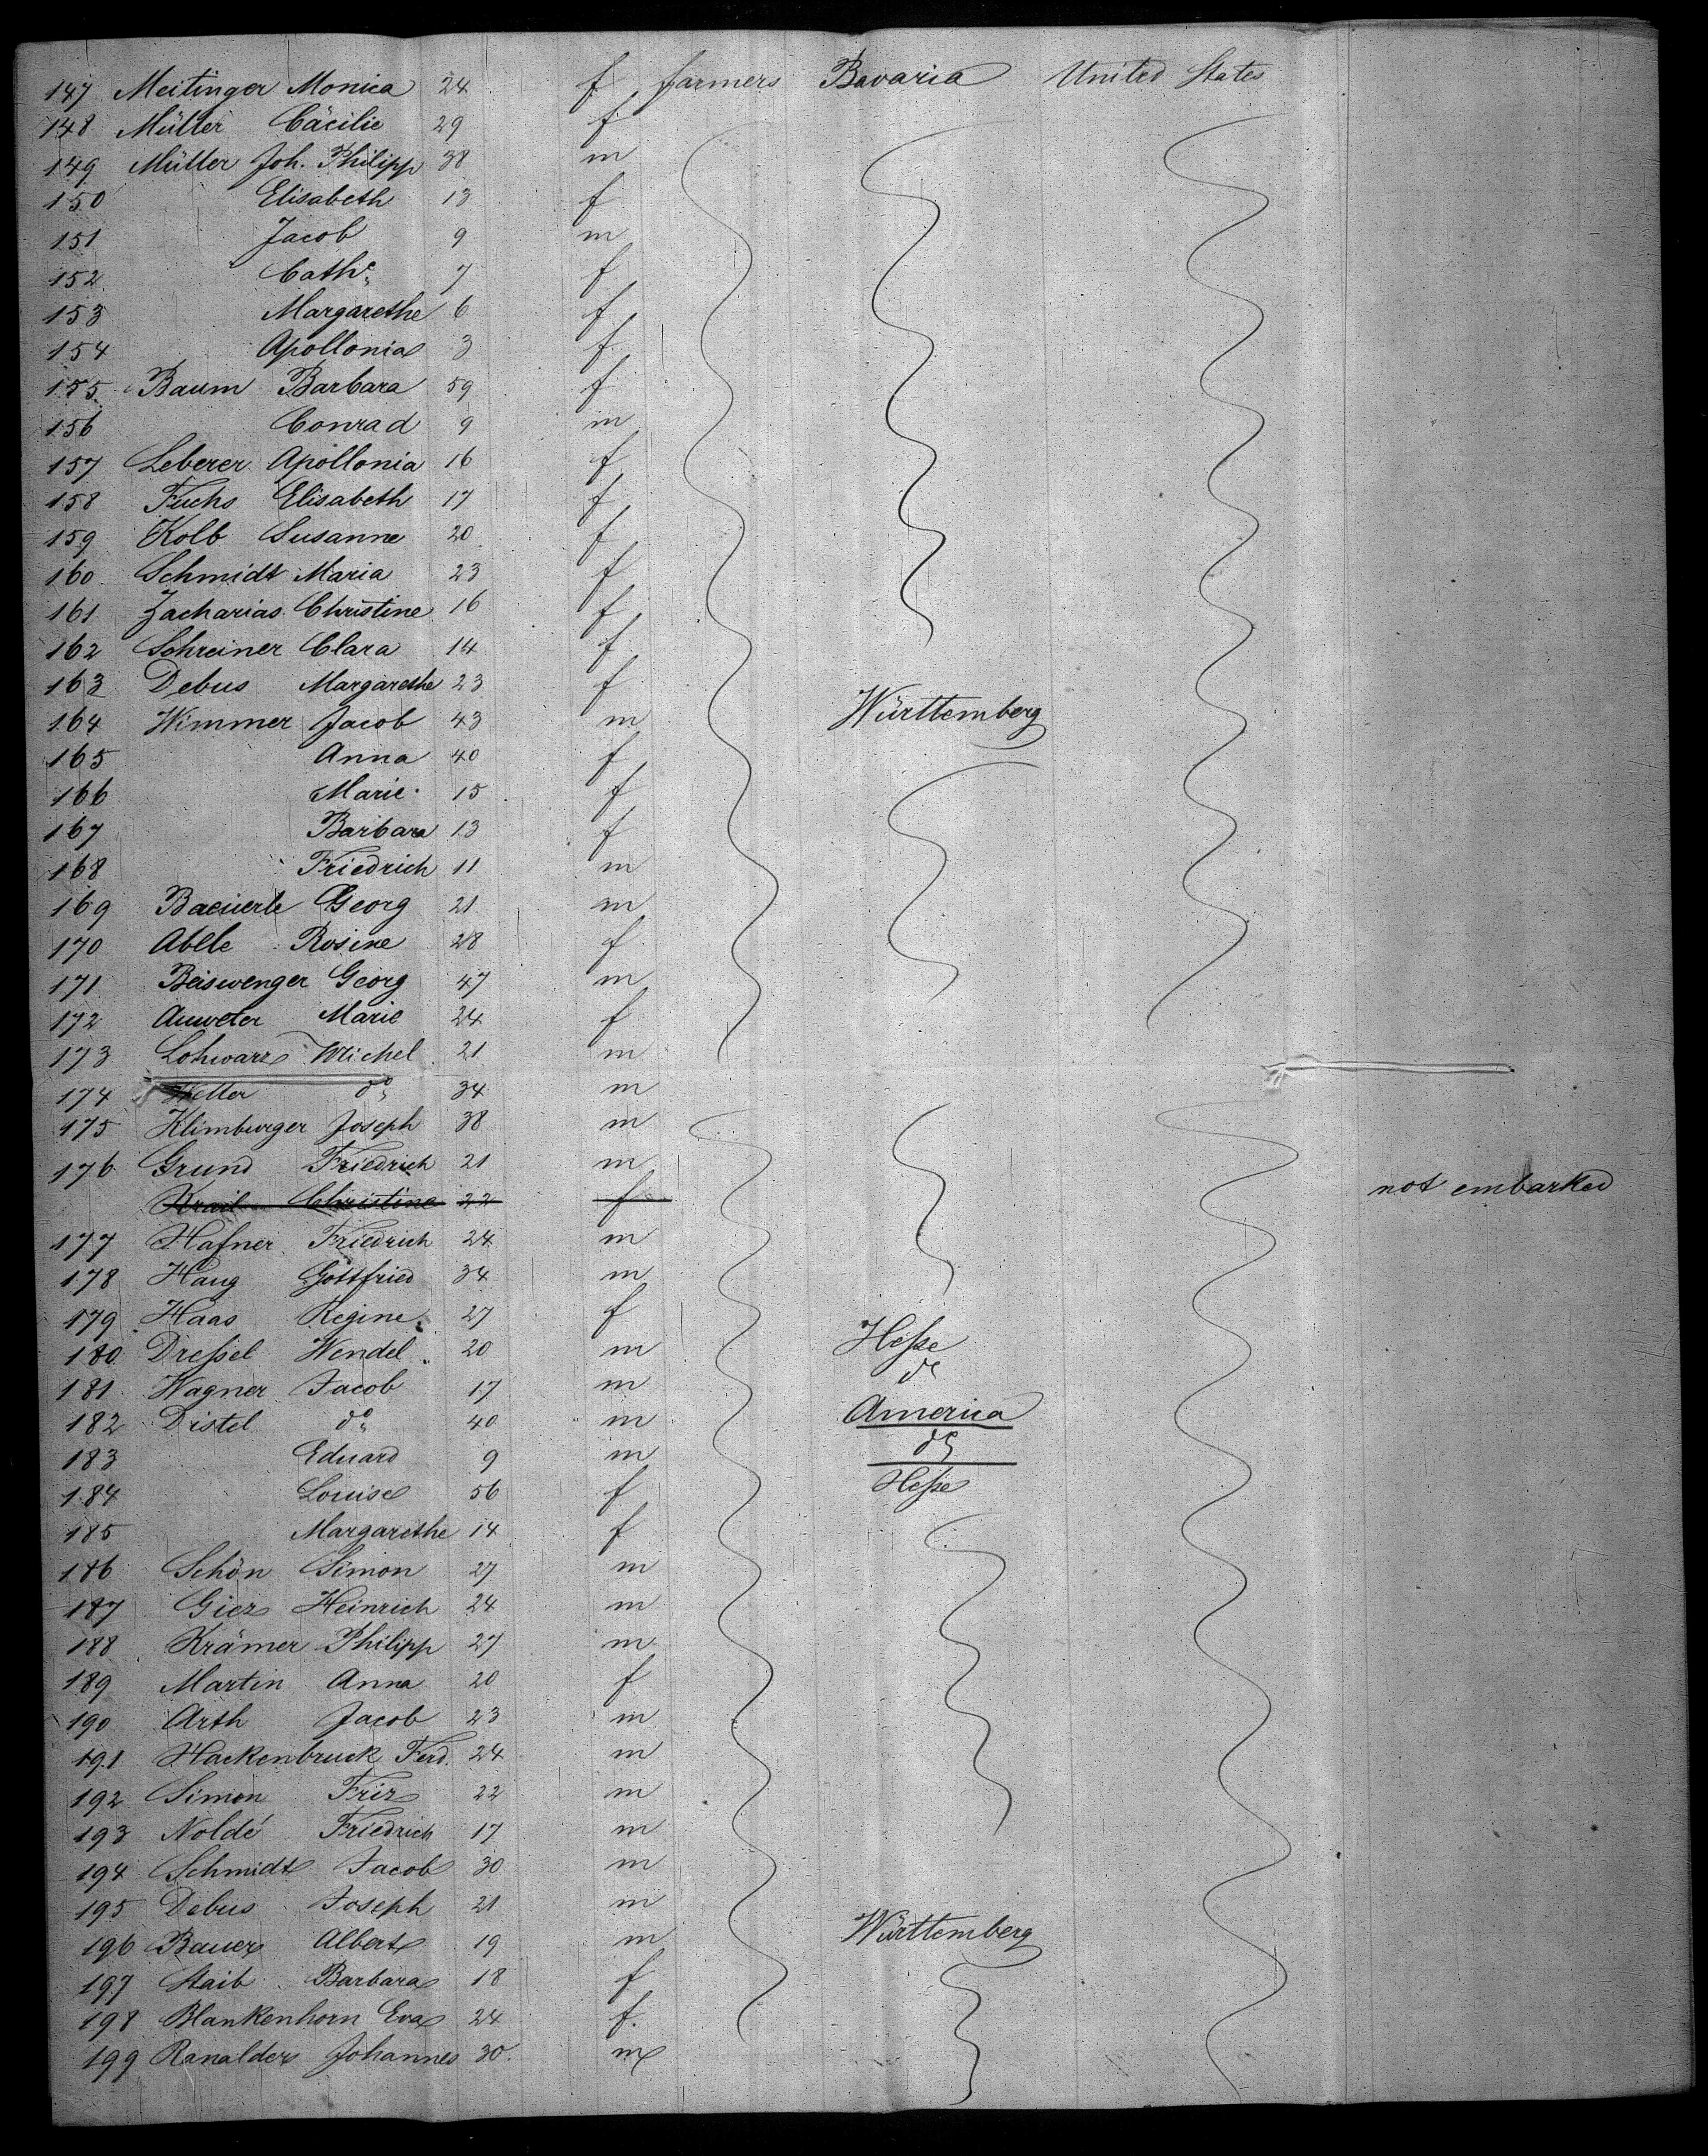 147 Meitinger Monica 24 f farmers Bavaria United States
148 Müller Cäcilie 29 f
149 Müller Joh. Philipp 38 m
150 Elisabeth 13 f
151 Jacob 9 m
152 Cathe. 7 f
153 Margarethe 6 f
154 Apollonia 3 f
155 Baum Barbara 59 f
156 Conrad 9 m
157 Leberer Apollonia 16 f
158 Fuchs Elisabeth 17 f
159 Kolb Susanne 20 f
160 Schmidt Maria 23 f
161 Zacharias Christine 16 f
162 Schreiner Clara 14 f
163 Debus Margarethe 23 f
164 Wimmer Jacob 43 m Württemberg
165 Anna 40 f
166 Marie 15 f
167 Barbara 13 f
168 Friedrich 11 m
169 Baeuerle Georg 21 m
170 Ablle Rosine 28 f
171 Beiswenger Georg 47 m
172 Auweter Marie 24 f
173 Lohwarz Michel 21 m
174 do 34 m
175 Klimburger Joseph 38 m
176 Grund Friedrich 21 m
Krail Christine 22 f not embarked
177 Hafner Friedrich 24 m
178 Haug Gottfried 34 m
179 Haas Regine 27 f
180 Dreßel Wendel 20 m Heße
181 Wagner Jacob 17 m do
182 Distel do 40 m America
183 Eduard 9 m do
184 Louise 56 f Heße
185 Margarethe 14 f
186 Schön Simon 27 m
187 Gierz Heinrich 24 m
188 Krämer Philipp 27 m
189 Martin Anna 20 f
190 Arth Jacob 23 m
191 Hackenbruck Ferd. 24 m
192 Simon Friz 22 m
193 Noldé Friedrich 17 m
194 Schmidt Jacob 30 m
195 Debus Joseph 21 m
196 Bauer Albert 19 m Württemberg
197 Staib Barbara 18 f
198 Blankenhorn Eva 24 f.
199 Ranalder Johannes 30. m